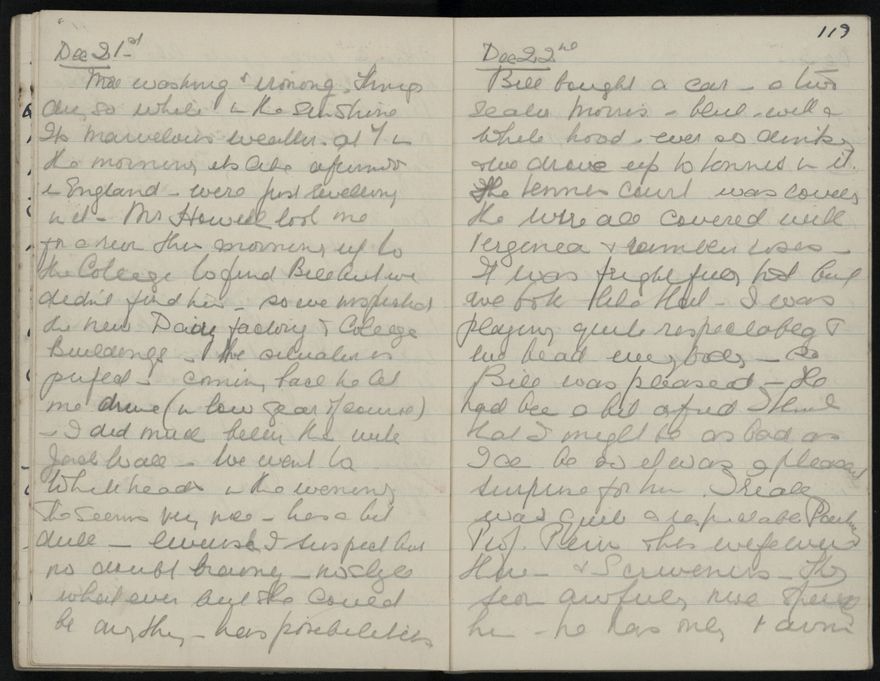 Dec 21st
washing & ironing. Things
dry so while in the sunshine
Its marvelous weather. at 7 in
the morning its like afternoon
in England - were just
in it - Mr Howell took me
for a run this morning up to
the College to find Bill but we
didn't find him - so we inspected
the new Dairy factory & College
Buildings - the situation is
perfect - coming back he let
me drive (in low gear of course)
- I did much better than with
Jack Wall - We went to
Whiteheads in the evening
She seems very nice - he's a bit
dull - I suspect but
no doubt brainy - no style
what ever but she could
be anything - has possibilities
119
Dec 22nd
Bill bought a car - a two
seater Morris - blue - with a
white hood - ever so dinky
& we drove up to tennis in it.
The tennis court was lovely
the wire all covered with
& rambler roses -
It was frightfully hot but
we both like that - I was
playing quite respectably &
we beat everybody - So
Bill was pleased - He
had been a bit afraid I think
that I might be as bad as
I can be so it was a pleasant
surprise for him. I really
was quite a respectable Partner
Prof. & his wife were
there - & Scriveners - They
seem awfully nice
him - he has only 1 arm